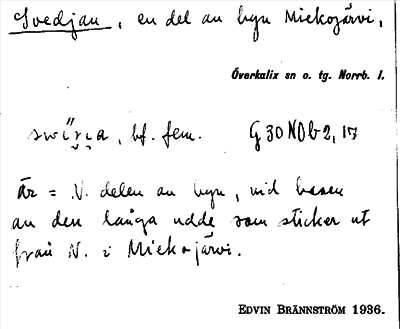 Svedjan, en del av byn Miekojärvi,
Överkalix sn o. tg. Norrb. l.
bf. fem. G 30 NOb 2, 17
Är = N. delen av byn, vid basen
av den långa udde som sticker ut
från N. i Miekojärvi.
EDVIN BRÄNNSTRÖM 1936.